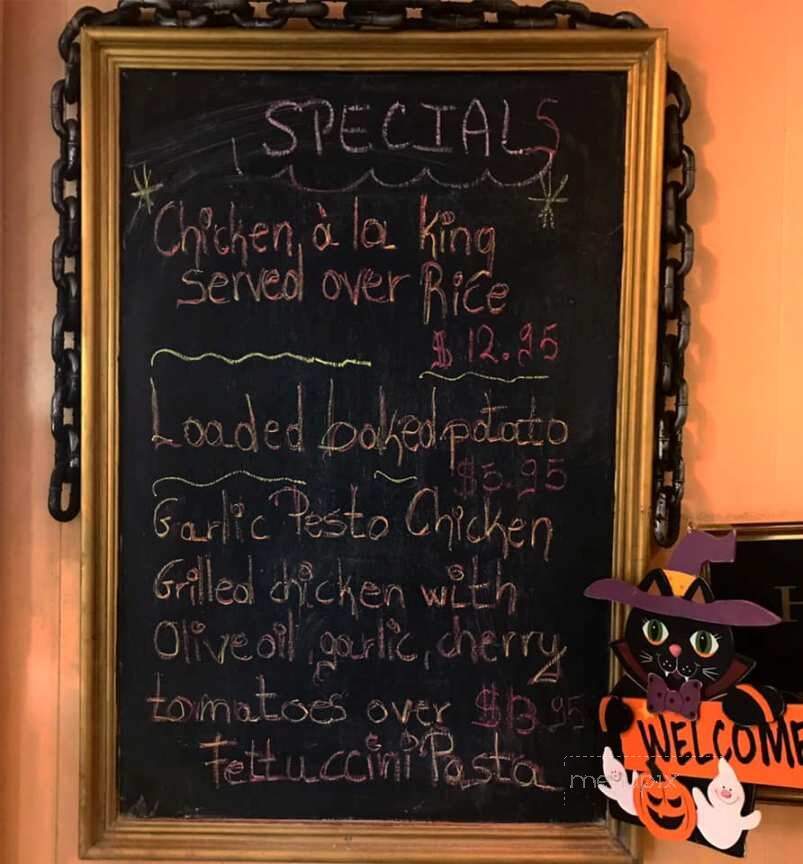 SPECIALS
Chicken à la King
served over Rice
$12.95
Loaded baked potato
$5.95
Garlic Pesto Chicken
Grilled chicken with
Olive oil, garlic, cherry
tomatoes over $13.95
Fettuccini Pasta
WELCOME
menupix